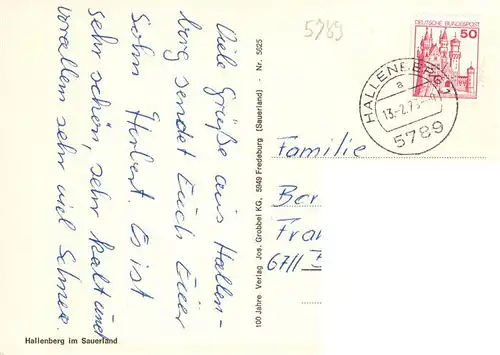 Viele Grüße aus Hallen-
berg sendet Euch Euer
Sohn Herbert. Es ist
sehr schön, sehr kalt und
vorallem sehr viel Schnee.
Hallenberg im Sauerland
100 Jahre Verlag Jos. Grobbel KG, 5949 Fredeburg (Sauerland) - Nr. 5025
5789
DEUTSCHE BUNDESPOST
50
HALLENBERG
a
13.-2.79
5789
Familie
Ber
Fra
6711